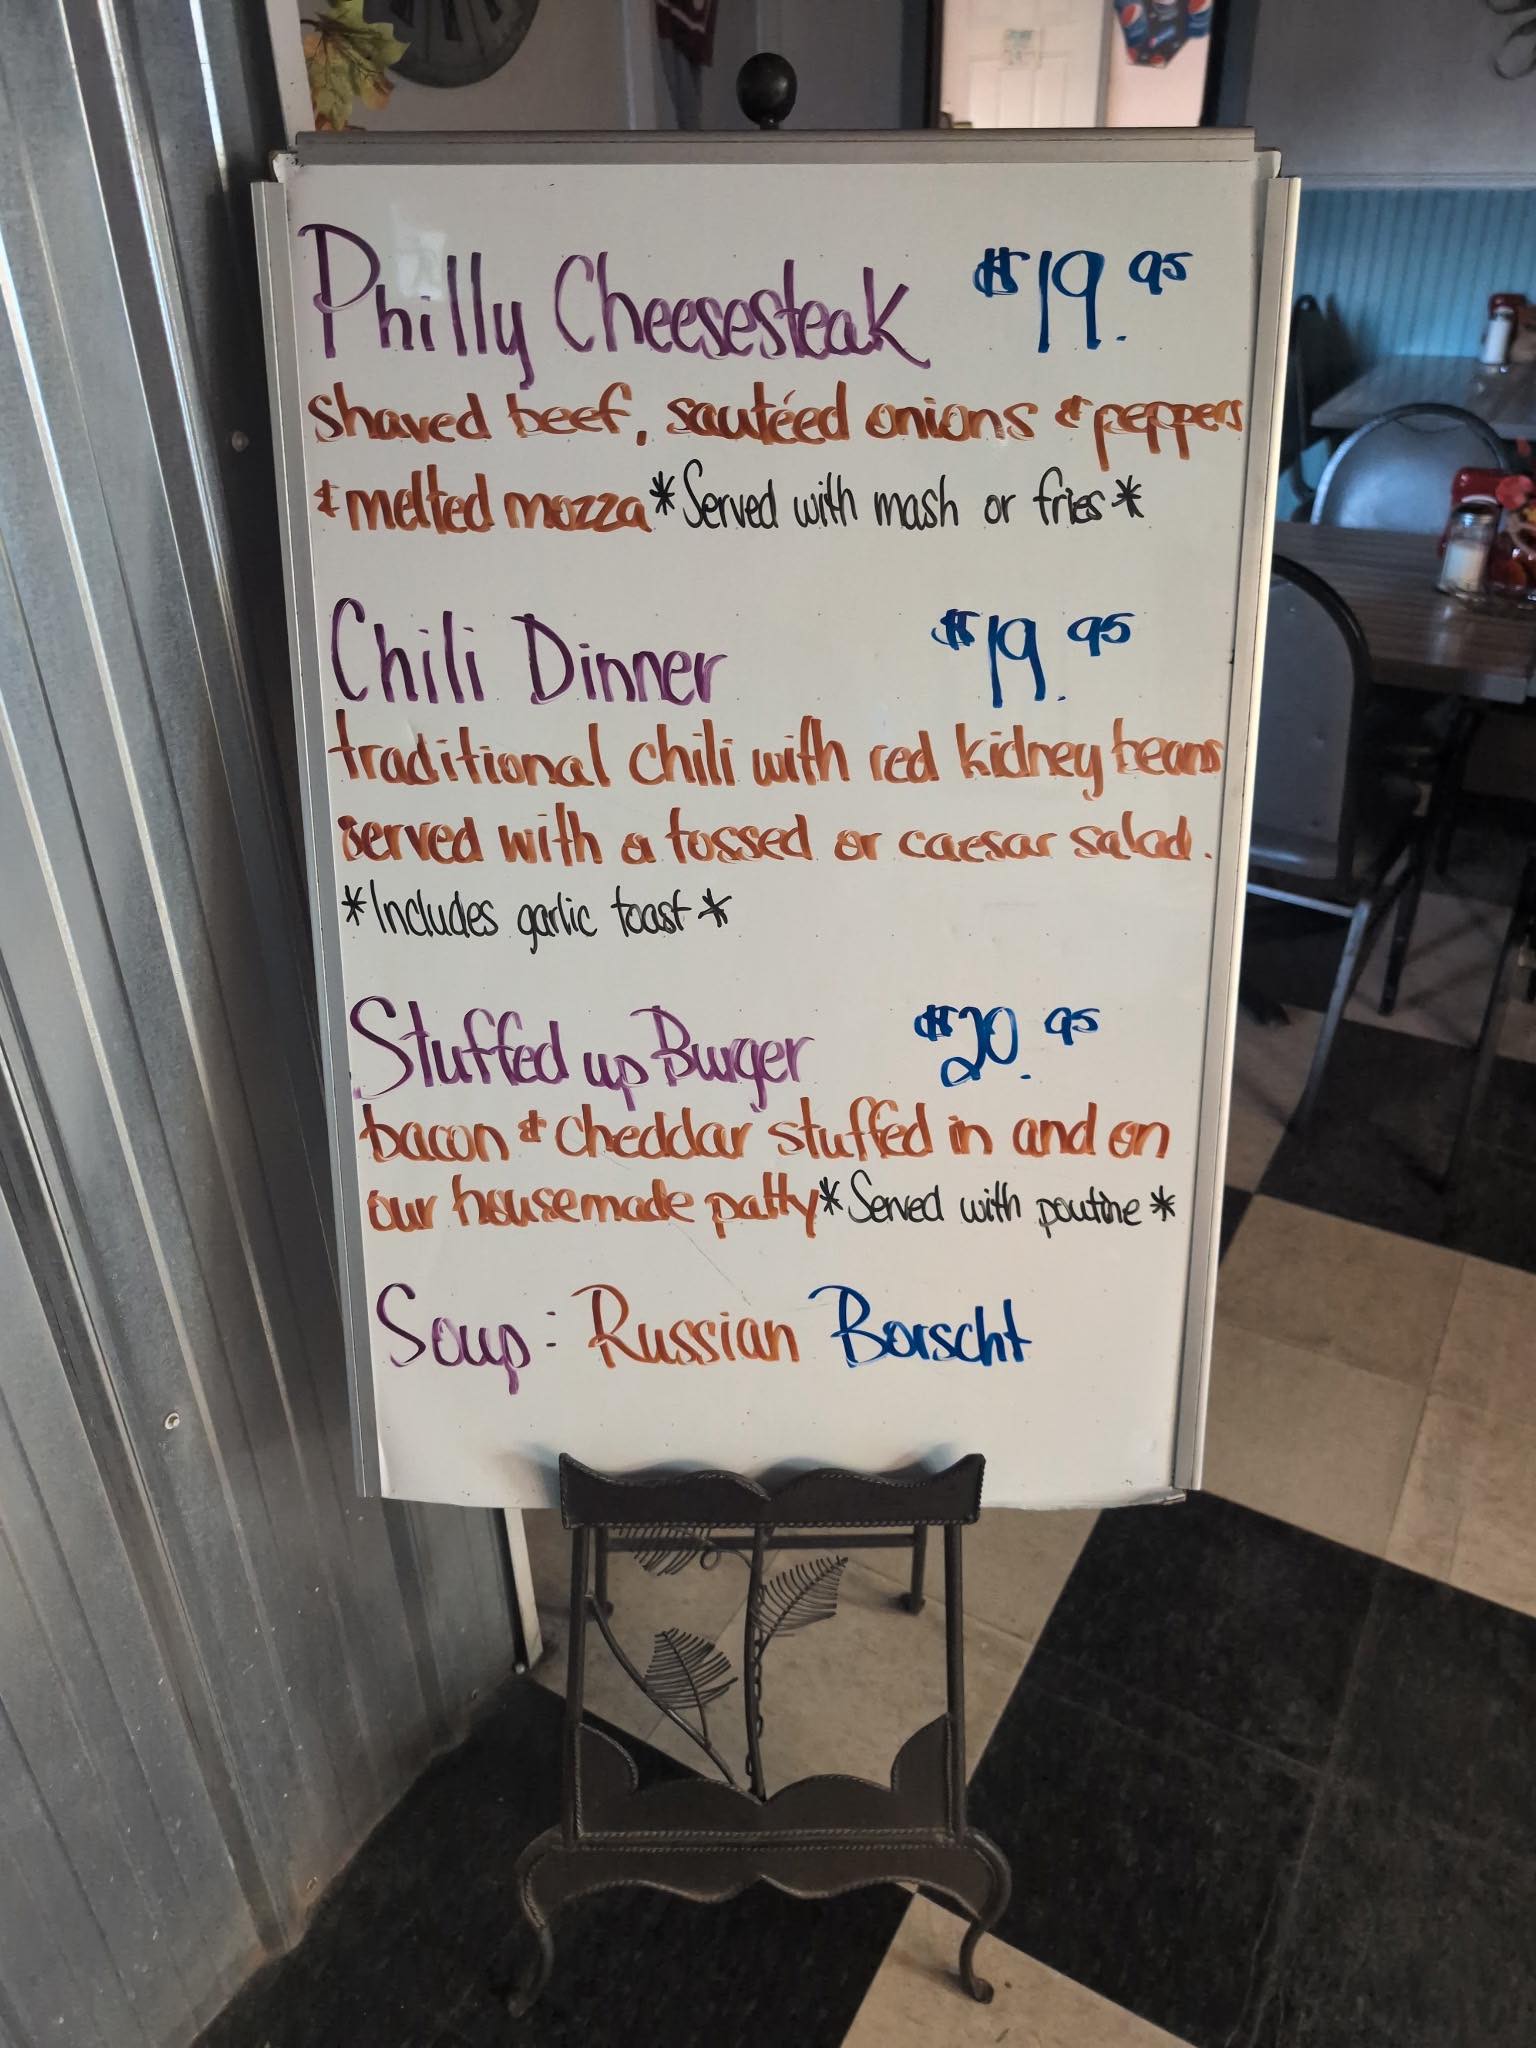 Philly Cheesesteak $19.95
shaved beef, sautéed onions & peppers
& melted mozza *Served with mash or fries*
Chili Dinner $19.95
traditional chili with red kidney beans
served with a tossed or caesar salad.
*Includes garlic toast*
Stuffed up Burger $20.95
bacon & cheddar stuffed in and on
our housemade patty *Served with poutine*
Soup: Russian Borscht